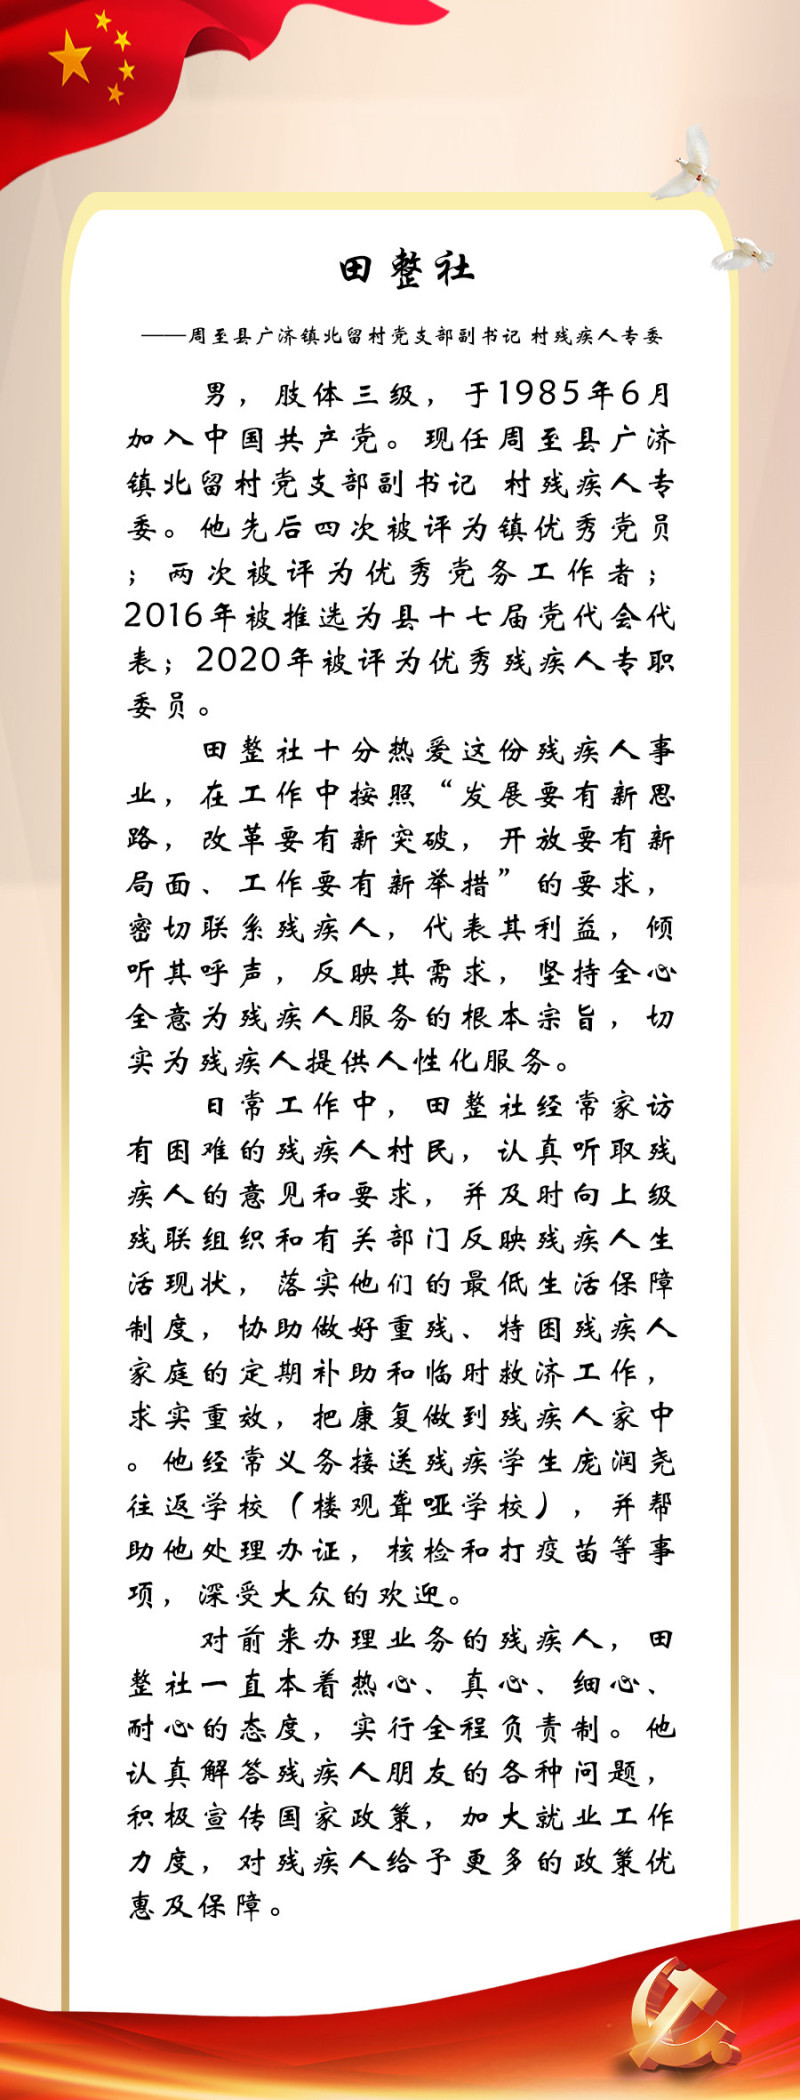 田整社
——周至县广济镇北留村党支部副书记 村残疾人专委
男，肢体三级，于1985年6月
加入中国共产党。现任周至县广济
镇北留村党支部副书记 村残疾人专
委。他先后四次被评为镇优秀党员
；两次被评为优秀党务工作者；
2016年被推选为县十七届党代会代
表；2020年被评为优秀残疾人专职
委员。
田整社十分热爱这份残疾人事
业，在工作中按照“发展要有新思
路，改革要有新突破，开放要有新
局面、工作要有新举措”的要求，
密切联系残疾人，代表其利益，倾
听其呼声，反映其需求，坚持全心
全意为残疾人服务的根本宗旨，切
实为残疾人提供人性化服务。
日常工作中，田整社经常家访
有困难的残疾人村民，认真听取残
疾人的意见和要求，并及时向上级
残联组织和有关部门反映残疾人生
活现状，落实他们的最低生活保障
制度，协助做好重残、特困残疾人
家庭的定期补助和临时救济工作，
求实重效，把康复做到残疾人家中
。他经常义务接送残疾学生庞润尧
往返学校（楼观聋哑学校），并帮
助他处理办证，核检和打疫苗等事
项，深受大众的欢迎。
对前来办理业务的残疾人，田
整社一直本着热心、真心、细心、
耐心的态度，实行全程负责制。他
认真解答残疾人朋友的各种问题，
积极宣传国家政策，加大就业工作
力度，对残疾人给予更多的政策优
惠及保障。